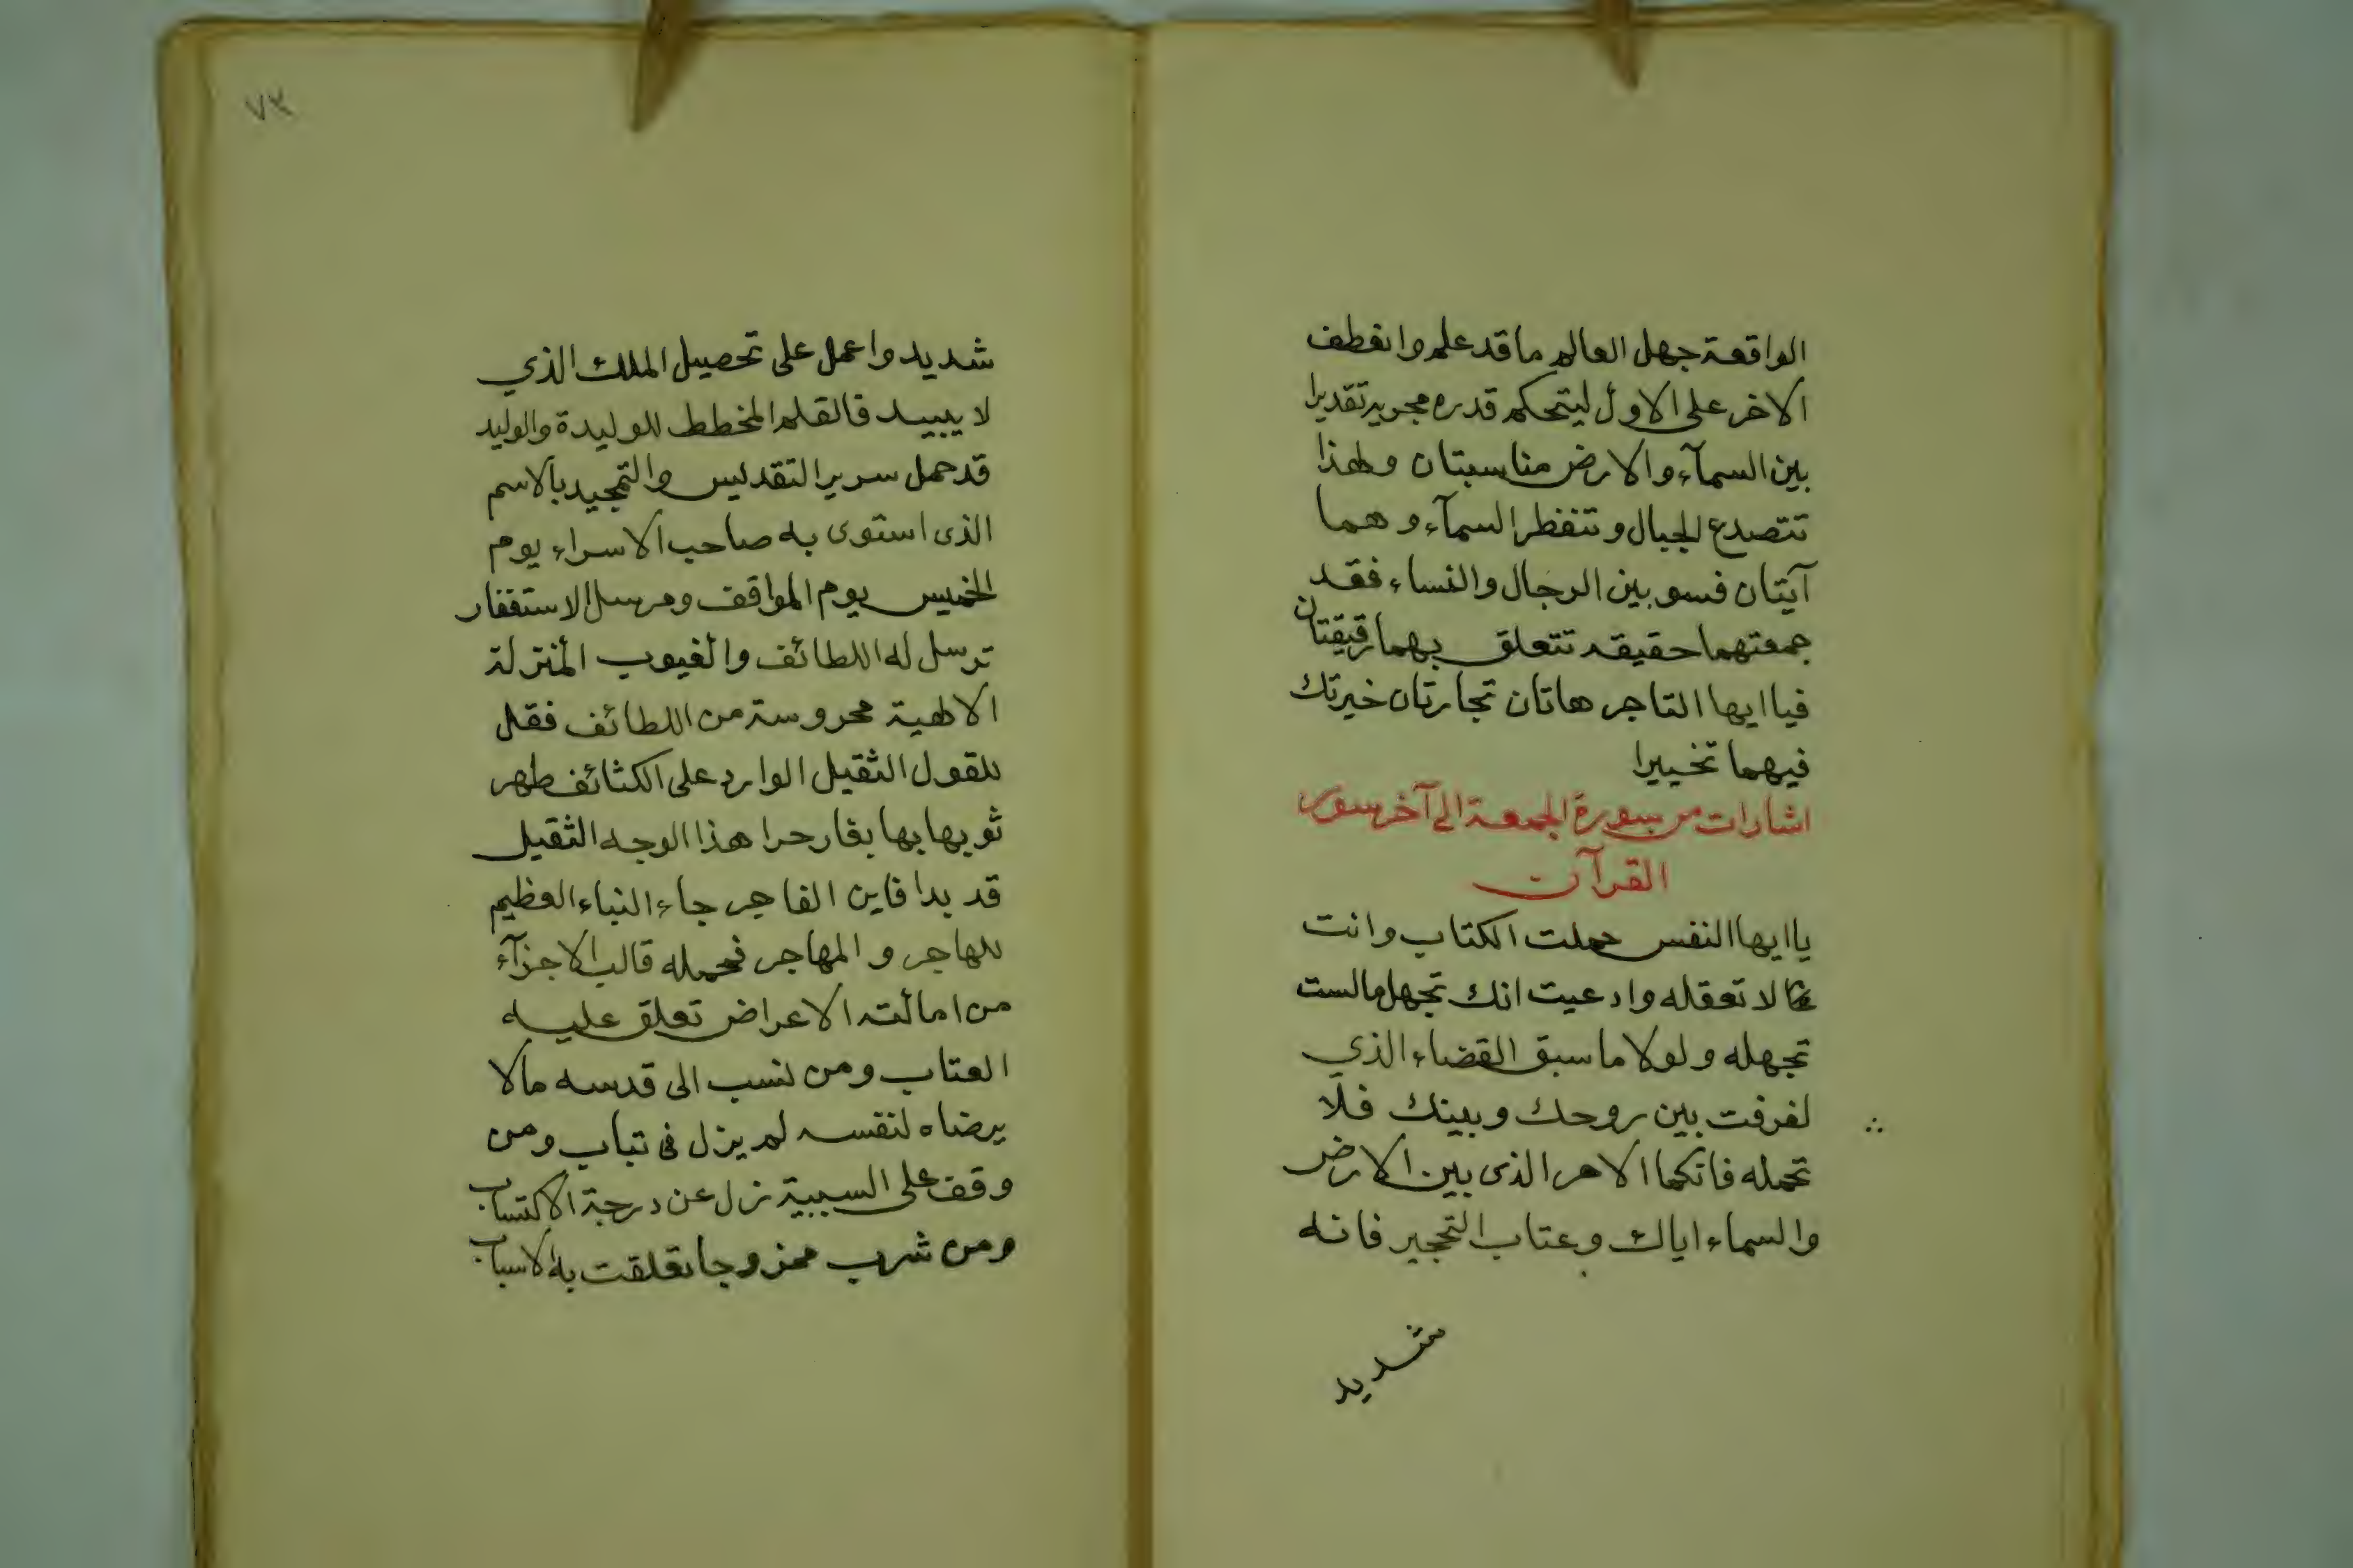 الواقعة جهل العالم ما قد علم وانعطف
الاخر على الاول ليتحكم قدره مجريه تقديرا
بين السمآء والارض مناسبتان ولهذا
تتصدع الجبال وتنفطر السمآء وهما
آيتان فسو بين الرجال والنساء فقد
جمعتهما حقيقه تتعلق بهما رقيقتان
فيا ايها التاجر هاتان تجارتان خيرتك
فيهما تخييرا
اشارات من سورة الجمعة الى آخر سور
القرآن
يا ايها النفس حملت الكتاب وانت
لا تعقله وادعيت انك تجهل مالست
تجهله ولولا ما سبق القضاء الذي
لفرقت بين روحك وبينك فلا
تحمله فانكما الامر الذى بين الارض
والسماء اياك وعتاب التحجير فانه
شديد
٧٣
شديد واعمل على تحصيل الملك الذي
لا يبيد فالقلم المخطط للوليدة والوليد
قد حمل سرير التقديس والتمجيد بالاسم
الذى استوى به صاحب الاسراء يوم
الخميس يوم المواقف ومرسل الاستغفار
ترسل له اللطائف والغيوب المنزلة
الالهية محروسة من اللطائف فقل
للقول الثقيل الوارد على الكثائف طهر
ثوبها بها بغار حرا هذا الوجه الثقيل
قد بدا فاين الفاجر جاء النباء العظيم
للهاجر والمهاجر فحمله قالب الاجزآء
من امالته الاعراض تعلق عليه
العتاب ومن نسب الى قدسه مالا
يرضاه لنفسه لم يزل فى تباب ومن
وقف على السببية نزل عن درجة الاكتساب
ومن شرب ممزوجا تعلقت به الاسباب